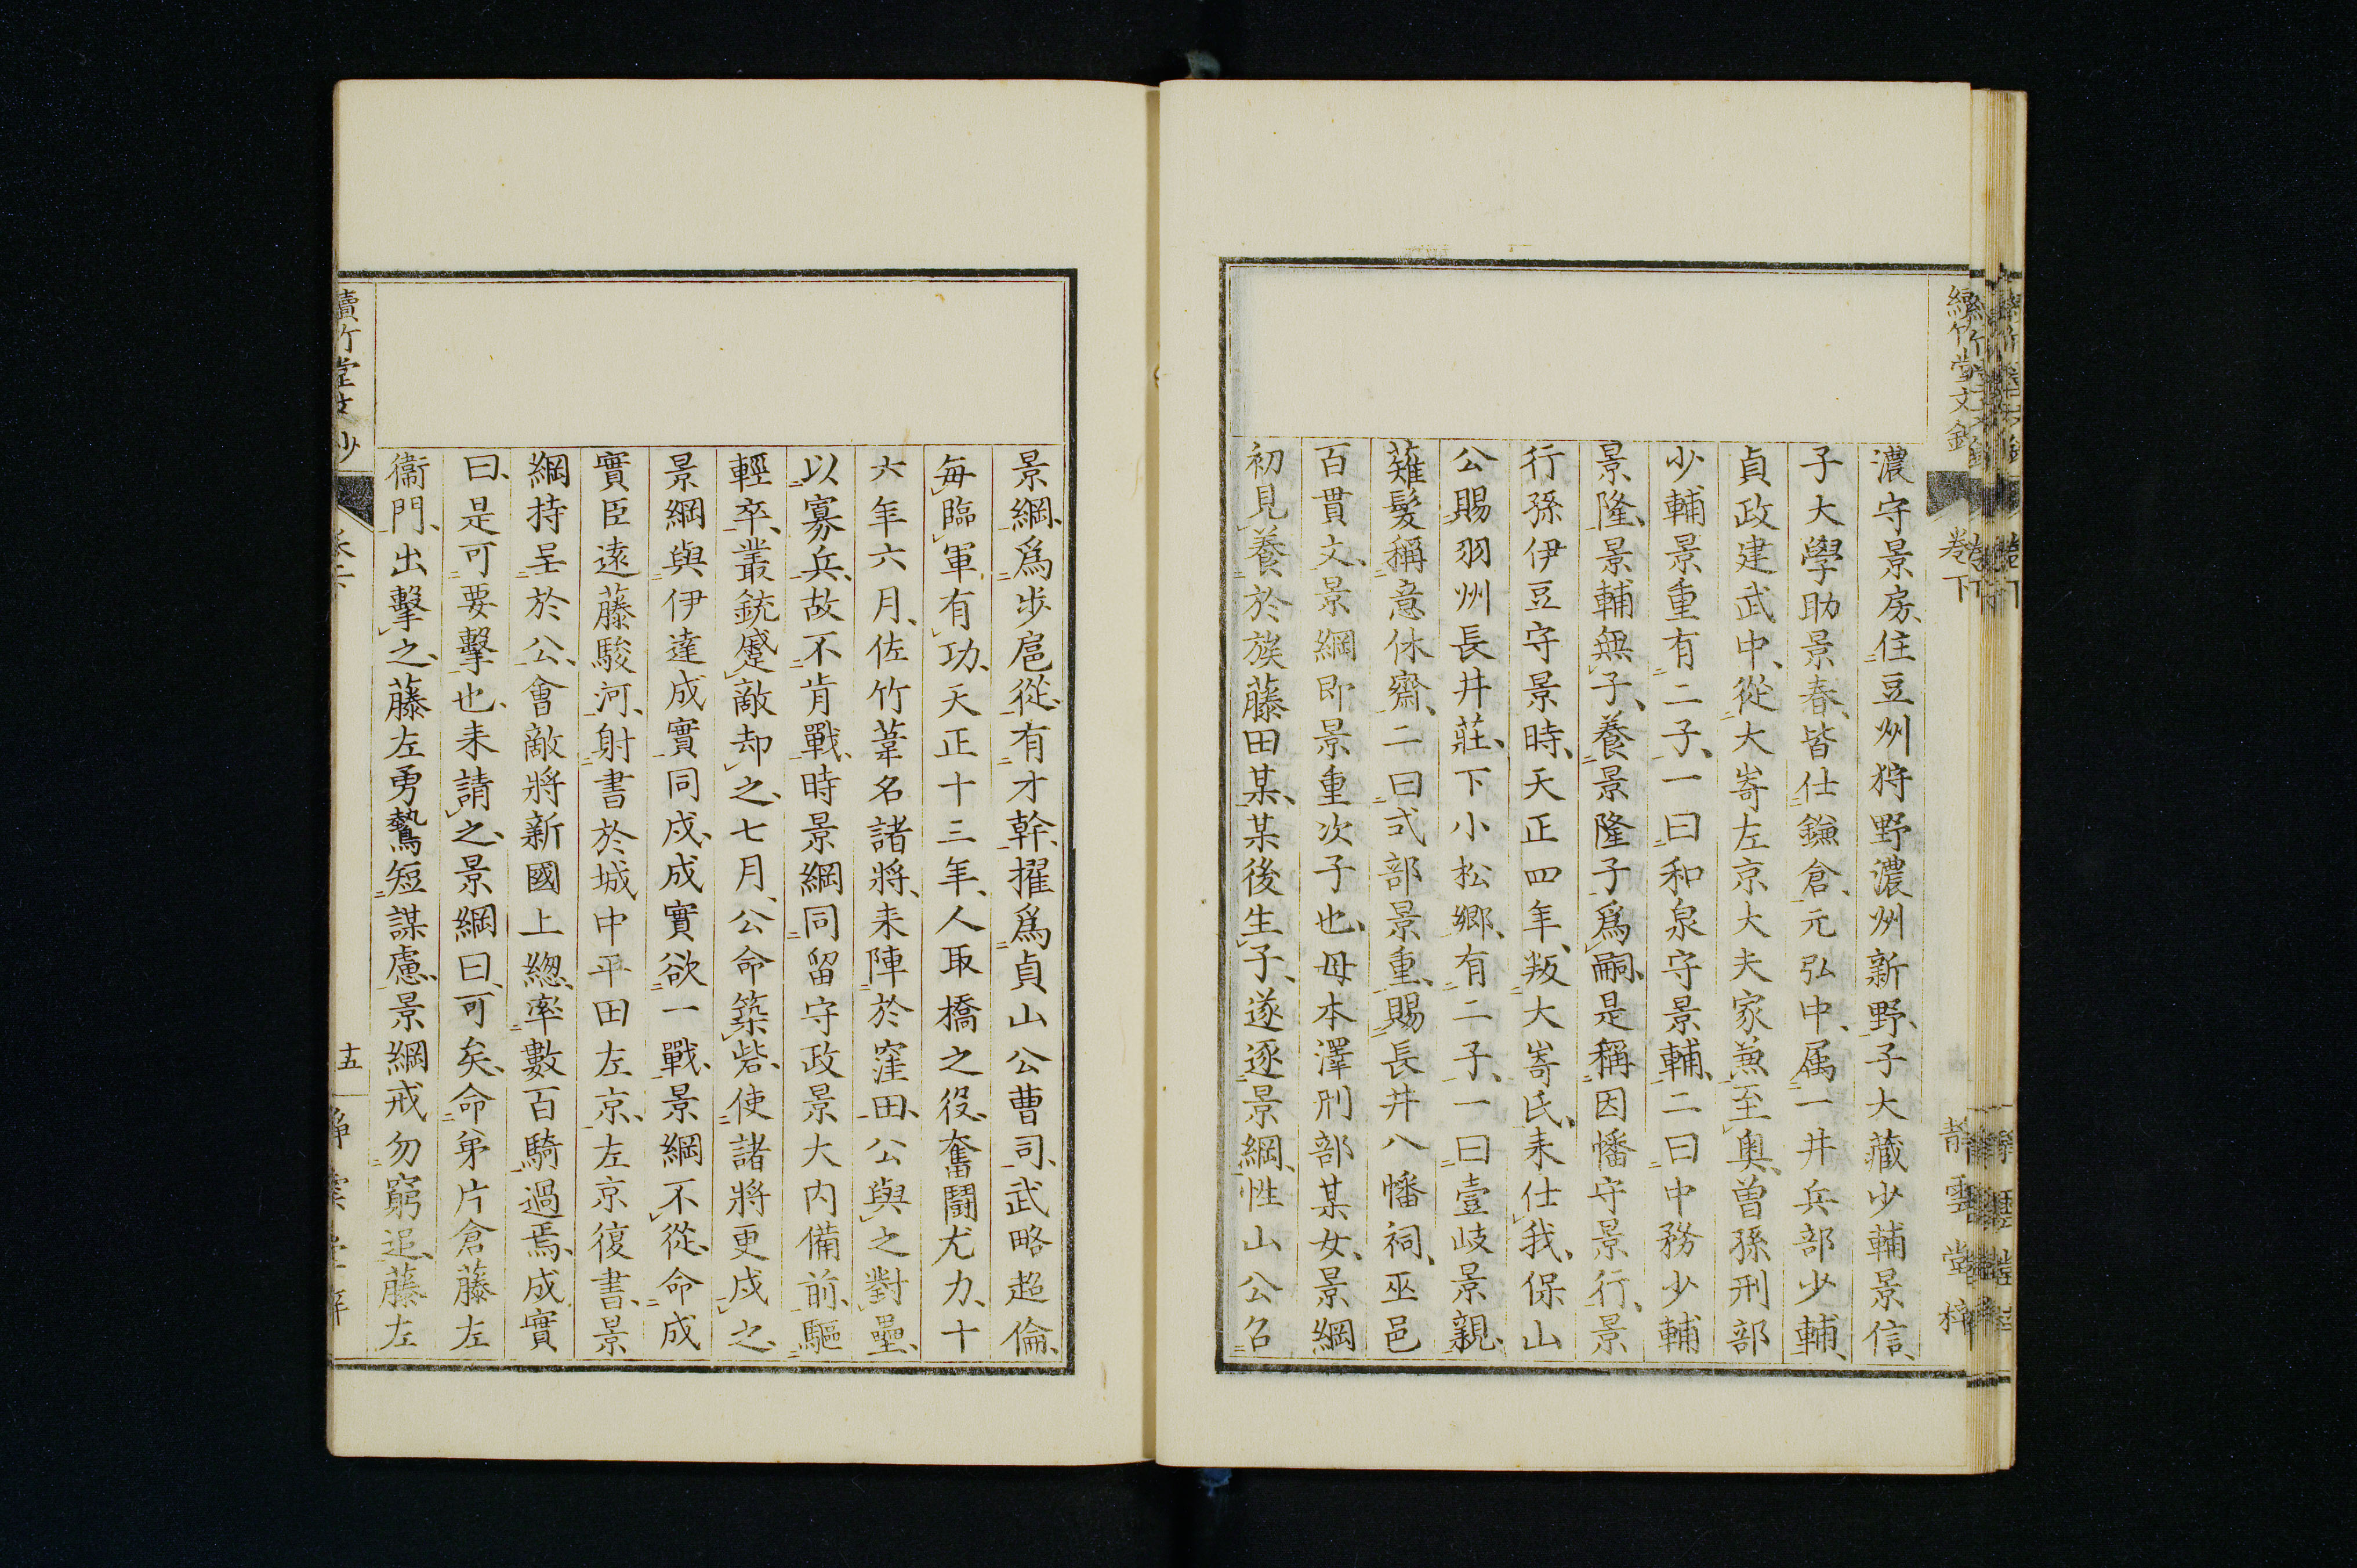 濃守景房、住豆州狩野濃州新野、子大藏少輔景信、
子大學助景春、皆仕鎌倉、元弘中、属一井兵部少輔、
貞政建武中、從大嵜左京大夫家兼至奥、曽孫刑部
少輔景重有二子、一曰和泉守景輔、二曰中務少輔
景隆、景輔無子、養景隆子爲嗣、是稱因幡守景行、景
行孫伊豆守景時、天正四年、叛大嵜氏、来仕我、保山
公賜羽州長井莊、下小松郷、有二子、一曰壹岐景親、
薙髮稱意休齋、二曰式部景重、賜長井八幡祠、巫邑
百貫文、景綱即景重次子也、母本澤刑部某女、景綱
初見養於族藤田某、某後生子、遂逐景綱、性山公召
卷下
景綱、爲歩扈從、有才幹、擢爲貞山公曹司、武略超倫、
毎臨軍有功、天正十三年、人取橋之役、奮鬪尤力、十
六年六月、佐竹葦名諸將、来陣於窪田、公與之對壘、
以寡兵、故不肯戰、時景綱同留守政景大内備前、驅
輕卒、叢銃蹙敵却之、七月、公命築砦、使諸將更戍之、
景綱與伊達成實同戍、成實欲一戰、景綱不從、命成
實臣遠藤駿河、射書於城中平田左京、左京復書、景
綱持呈於公、會敵將新國上總、率數百騎過焉、成實
曰、是可要擊也、来請之、景綱曰、可矣、命弟片倉藤左
衞門、出擊之、藤左勇鷙短謀慮、景綱戒勿窮追、藤左
十五